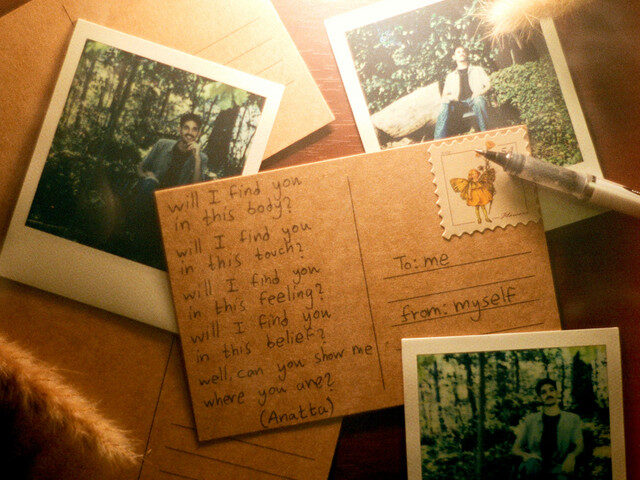 will I find you
in this body?
will I find you
in this touch?
will I find you
in this feeling?
will I find you
in this belief?
well, can you show me
where you are?
(Anatta)
To: me
from: myself